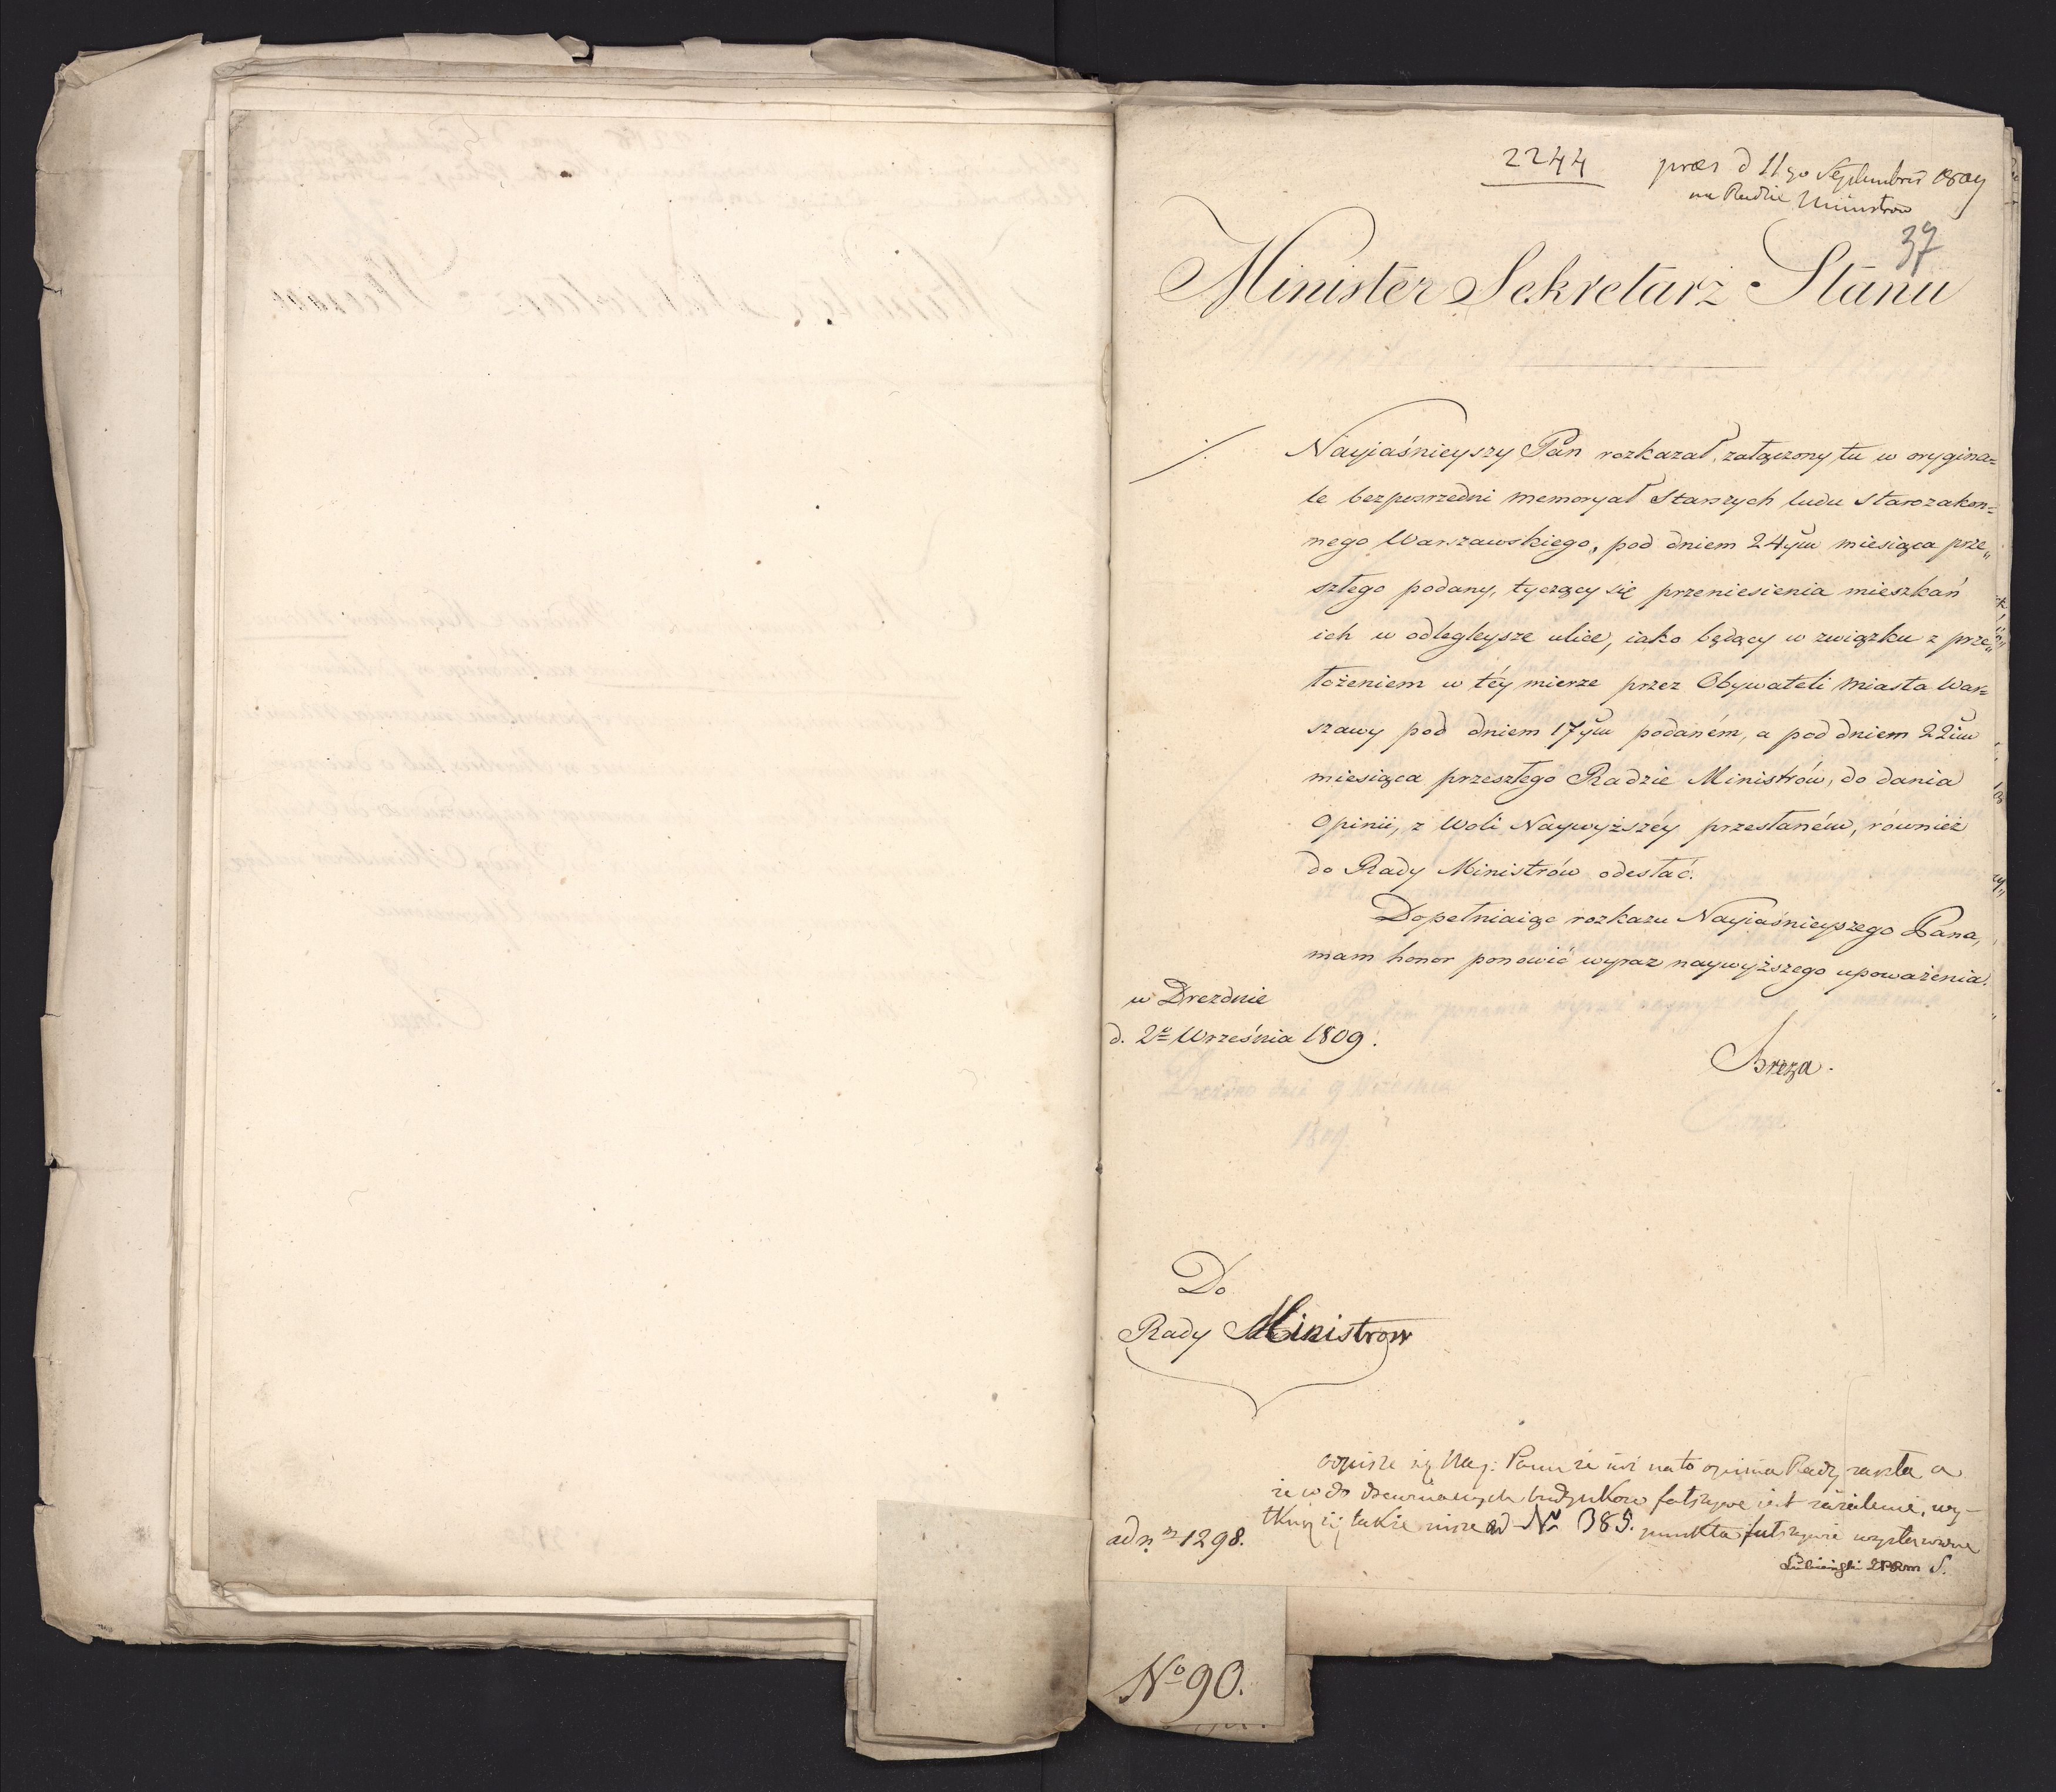 2244
præs d 11go Septembris 1809
na Radzie Ministrow
37
Minister Sekretarz Stanu
Nayjaśnieyszy Pan rozkazał, załączony tu w orygina=
le bezpośrzedni memoryał Starszych ludu Starozakon=
nego Warszawskiego, pod dniem 24ym miesiąca prze„
szłego podany, tyczący się przeniesienia mieszkań
ich w odległeysze ulice, iako będący w związku z prze„
łożeniem w téy mierze przez Obywateli Miasta War=
szawy pod dniem 17ym podaném, a pod dniem 22im
miesiąca przeszłego Radzie Ministrów, do dania
Opinii, z Woli Naywyższéy przesłaném, również
do Rady Ministrów odesłać.
Dopełniaiąc rozkazu Nayiaśnieyszego Pana,
mam honor ponowić wyraz naywyższego upoważenia.
w Dreznie
d. 2º Września 1809.
Breza.
Do
Rady Ministrow
odpisze się Nay: Panu że iuż na to opinia Rady zaszła a
że w do drewnianych budynkow fałszywe iest użalenie, wy-
tkną się także ad Nº 385. punkta fałszywie
ad nm 1298.
Łubieński S.
Nº 90.